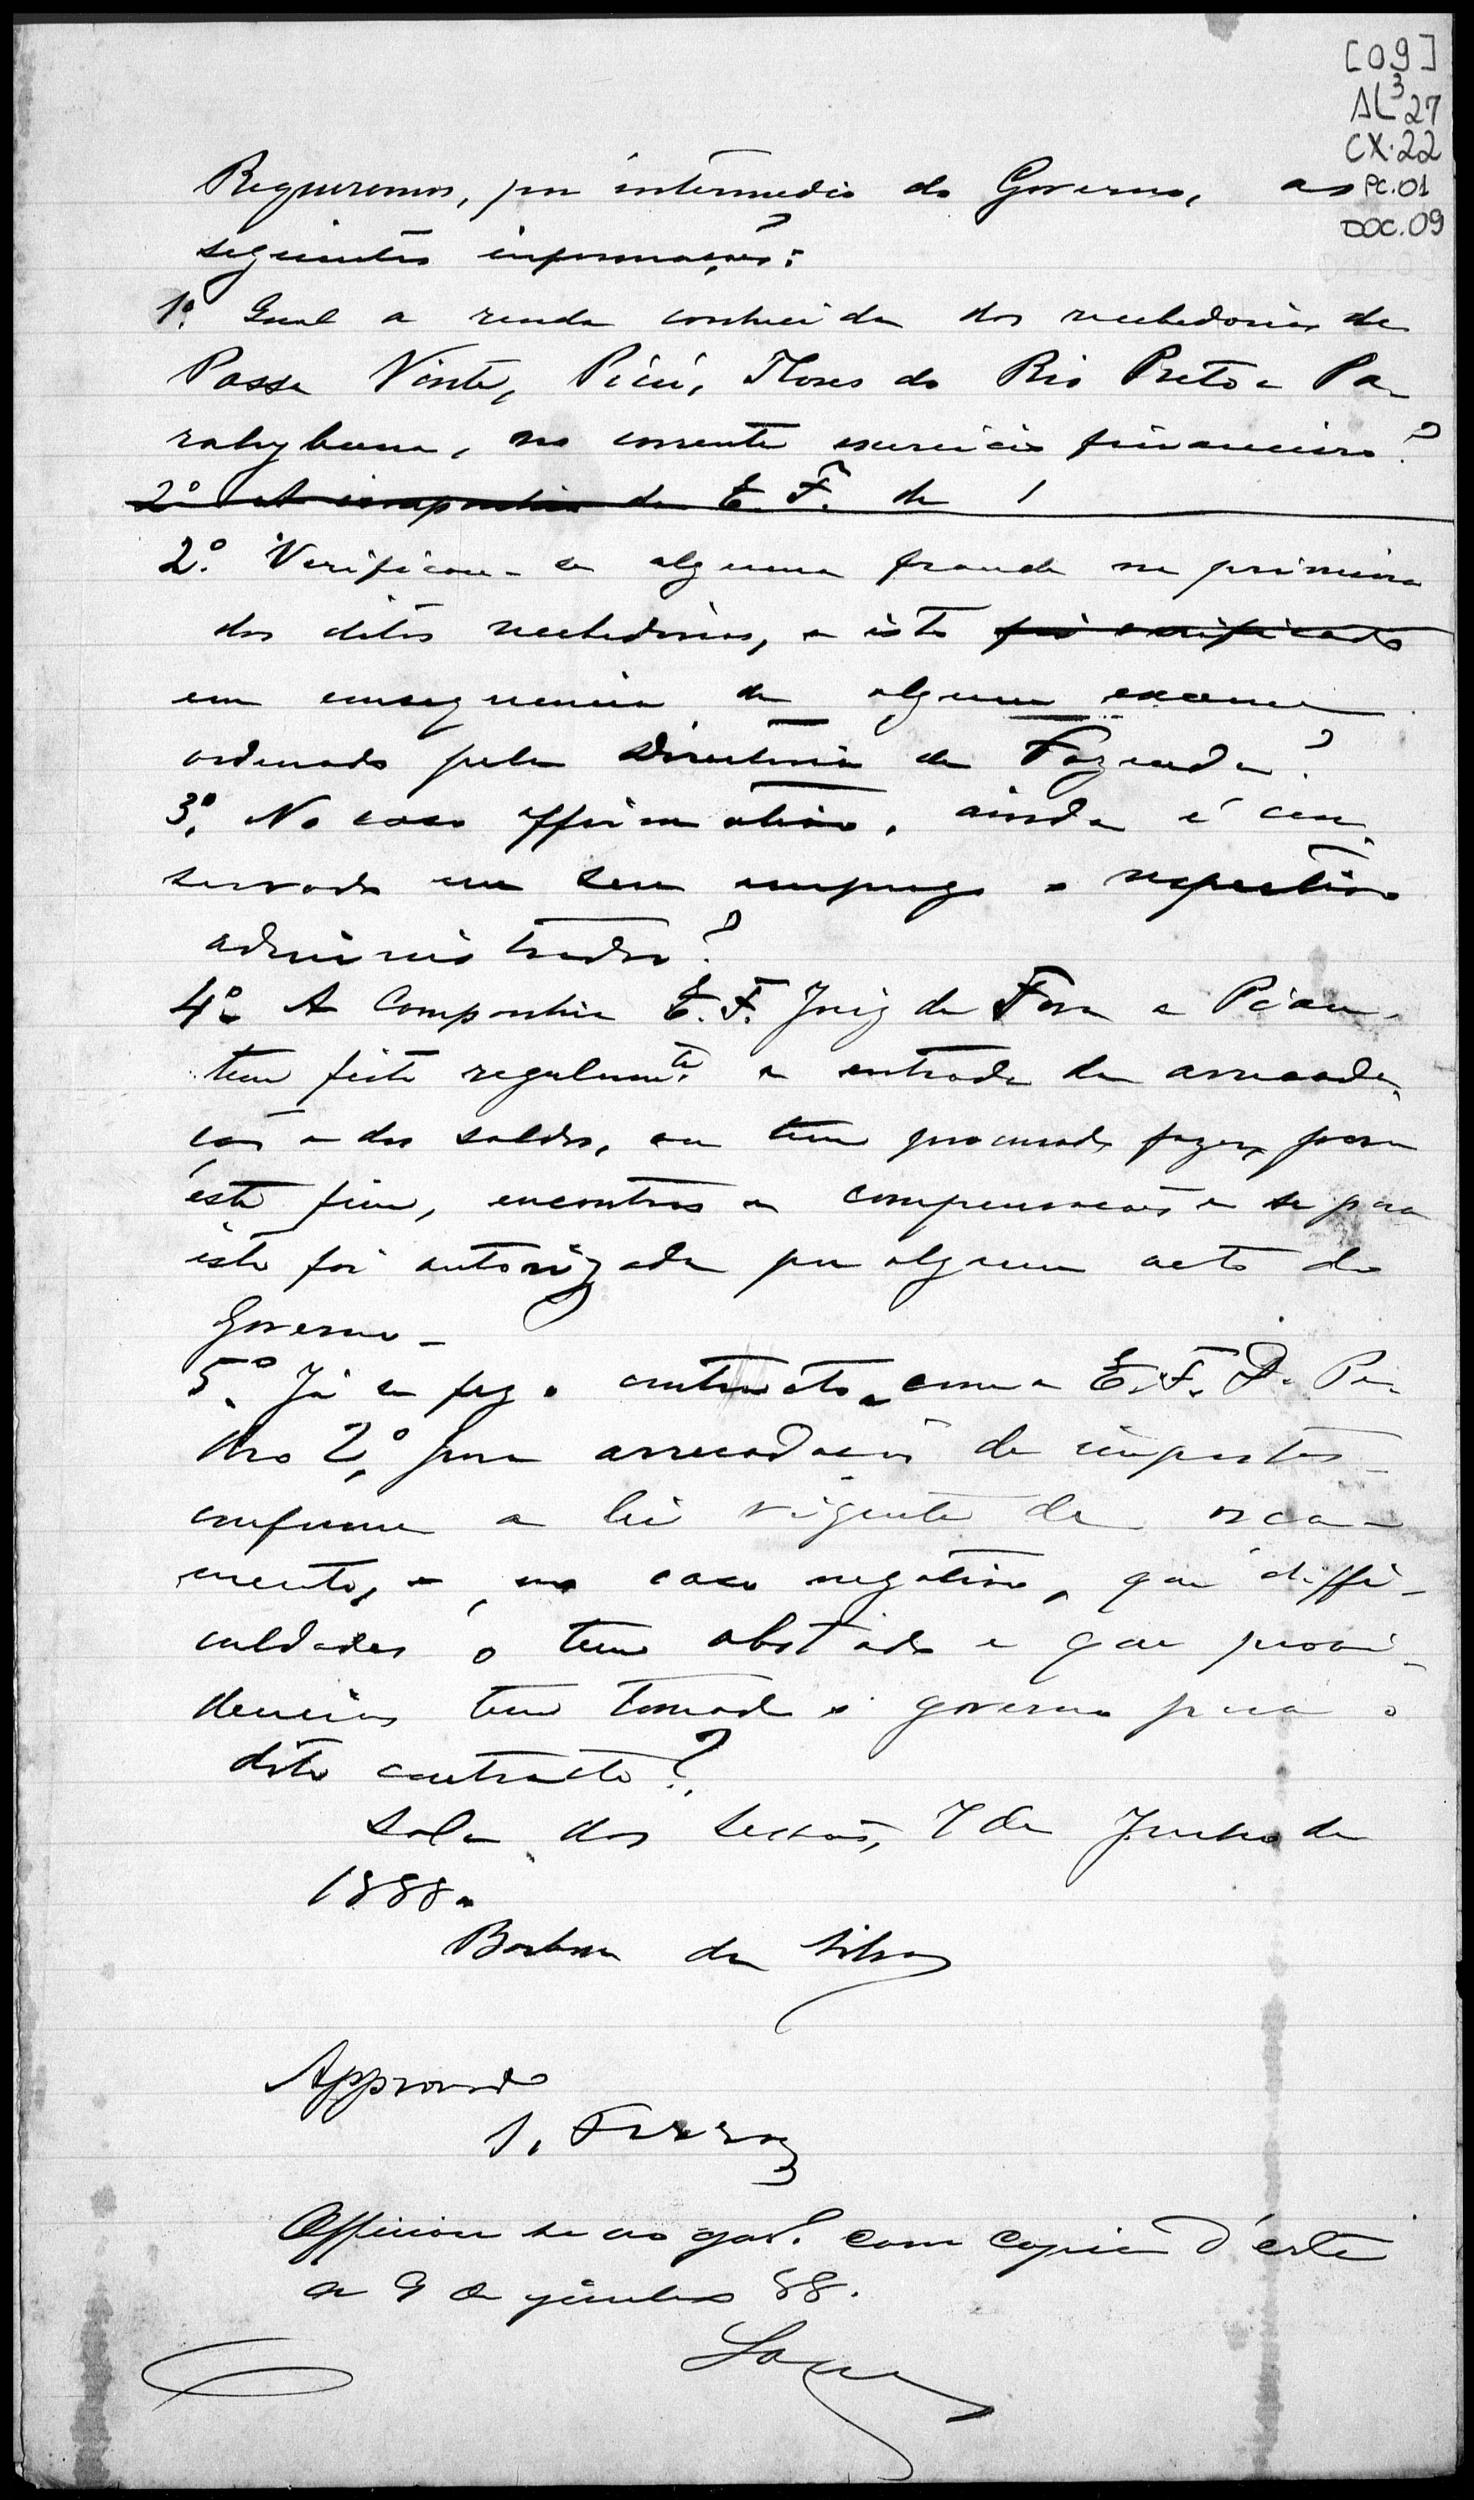 [09]
AL³ 27
CX. 22
PC. 01
DOC. 09
Requeremos, por intermedio do Governo, as
seguintes informações:
1º. Qual a renda conhecida das recebedorias de
Passa Vinte, Picú, Flores do Rio Preto e Pa-
rahybuna, no corrente exercicio financeiro?
2º A companhia de E. F. de
2º. Verificou-se alguma fraude na primeira
das ditas recebedorias, e isto foi verificado
em consequencia de algum exame
ordenado pela Directoria da Fazenda?
3º. No caso affirmativo, ainda é con-
servado em seu emprego o respectivo
administrador?
4º A Companhia E. F. Juiz de Fora e Piau,
tem feito regularmte. a entrada da arrecada-
ção e dos saldos, ou tem procurado fazer, para
este fim, encontros e compensações e se para
isto foi autorizada por algum acto do
Governo_
5º. Já se fez o contracto com a E. F. D. Pe-
dro 2º, para arrecadação de impostos
conforme a lei vigente de orça-
mento, e, no caso negativo, que diffi-
culdades o tem obstado e que provi-
dencias tem tomado o governo para o
dito contracto?
Sala das Sessões, 7 de Junho de
1888.
Barbosa da Silva
Approvado
S. Ferraz
Officiou se ao gov. com copia d'este
a 9 de junho 88.